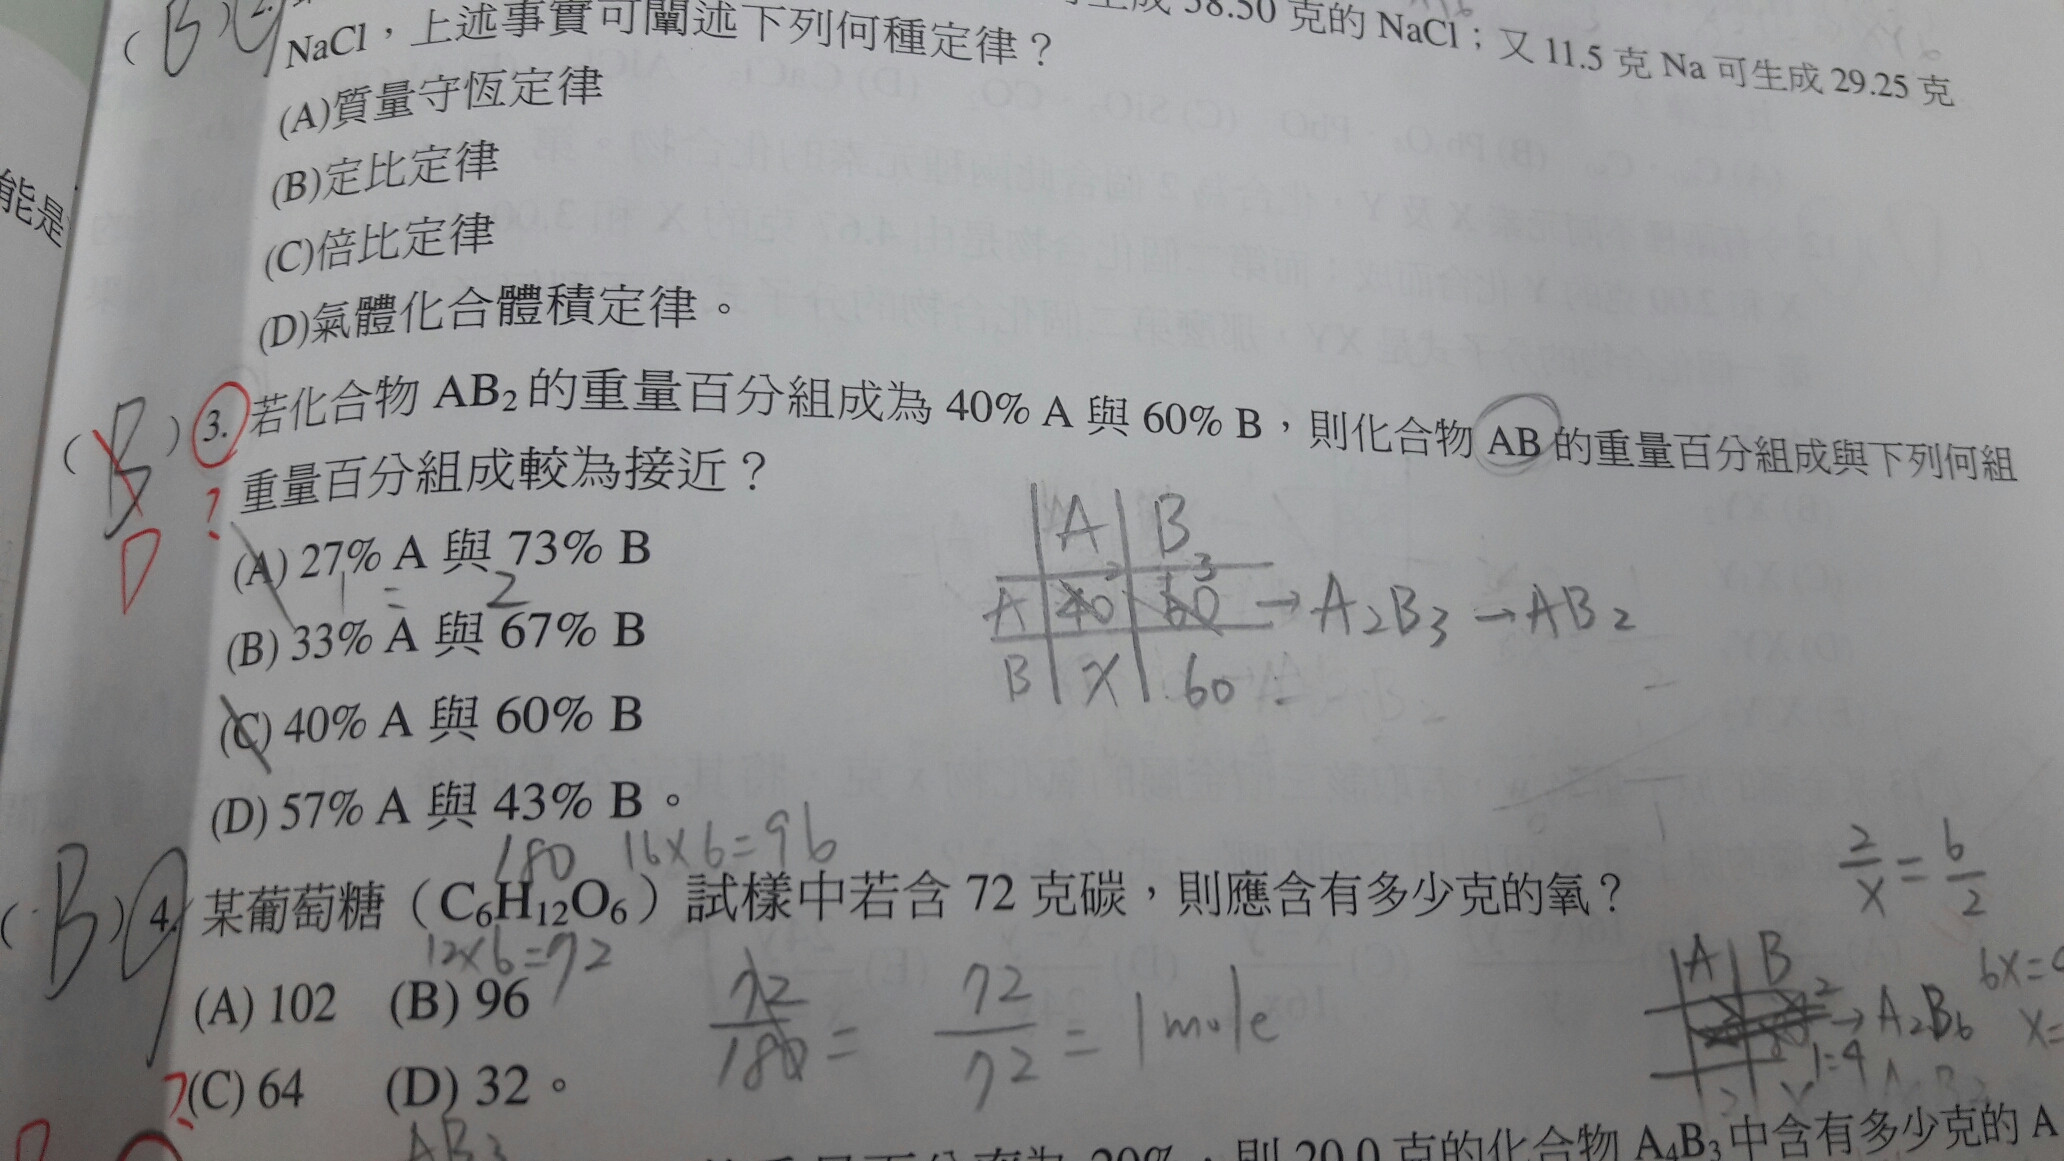 (B) 2.
38.50 克的 NaCl；又 11.5 克 Na 可生成 29.25 克
NaCl，上述事實可闡述下列何種定律？
(A)質量守恆定律
(B)定比定律
(C)倍比定律
(D)氣體化合體積定律。
(B) 3. 若化合物 AB₂ 的重量百分組成為 40% A 與 60% B，則化合物 AB 的重量百分組成與下列何組
D ? 重量百分組成較為接近？
(A) 27% A 與 73% B
1 = 2
(B) 33% A 與 67% B
(C) 40% A 與 60% B
(D) 57% A 與 43% B。
A B
A 40 60 3 → A₂B₃ → AB₂
B X 60
180 16×6=96
(B) 4. 某葡萄糖（C₆H₁₂O₆）試樣中若含 72 克碳，則應含有多少克的氧？
12×6=72
(A) 102 (B) 96
?(C) 64 (D) 32。
72/180 = 72/72 = 1 mole
2/X = 6/2
6X=
X=
A B
2 → A₂B₆
1:4
AB₃
20%，則 20.0 克的化合物 A₄B₃ 中含有多少克的 A
能是